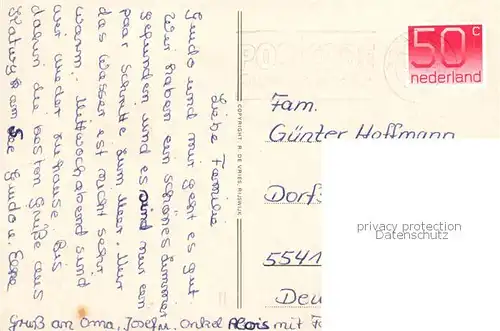 Liebe Familie
Guido und mir geht es gut.
Wir haben ein schönes Zimmer
gefunden und es sind nur ein
paar Schritte zum Meer. Nur
das Wasser ist nicht sehr
warm. Mittwochabend sind
wir wieder zuhause. Bis
dahin die besten Grüße aus
Katwyk am See Guido u. Elke
Gruß an Oma, Josef u. Onkel Alois mit
COPYRIGHT R. DE VRIES, RIJSWIJK
50 c
nederland
Fam.
Günter Hoffmann
Dorf
5541
Deu
privacy protection
Datenschutz